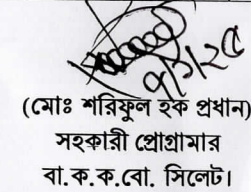 ৭/১/২৫
(মোঃ শরিফুল হক প্রধান)
সহকারী প্রোগ্রামার
বা.ক.ক.বো. সিলেট।